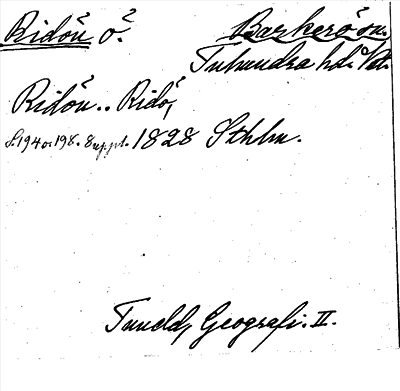 Ridön ö. Barkerö sn.
Tuhundra hd. Vstm.
Ridön.. Ridö,
S. 194 o. 198. Suppl. 1828 Sthlm.
Tuneld, Geografi. II.